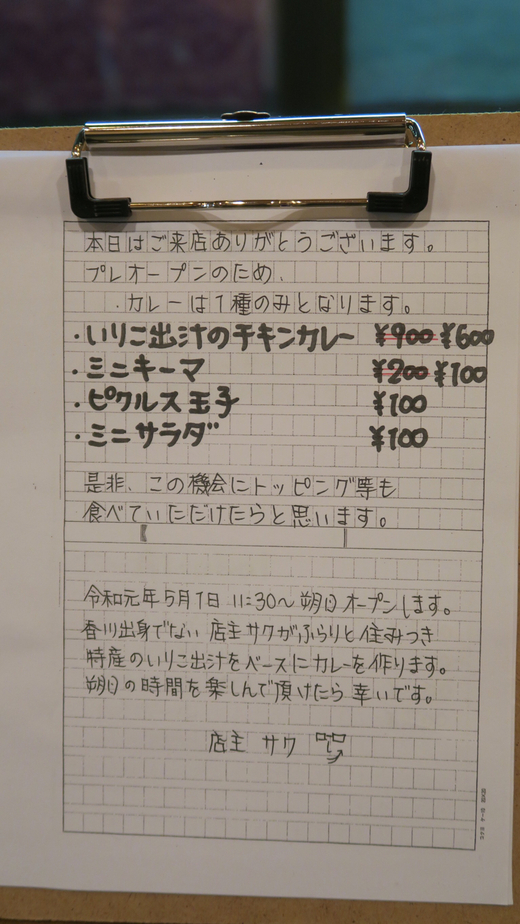 本日はご来店ありがとうございます。
プレオープンのため、
・カレーは1種のみとなります。
・いりこ出汁のチキンカレー ¥900 ¥600
・ミニキーマ ¥200 ¥100
・ピクルス玉子 ¥100
・ミニサラダ ¥100
是非、この機会にトッピング等も
食べていただけたらと思います。
令和元年5月1日 11:30〜 朔日オープンします。
香川出身でない 店主サクがふらりと住みつき
特産のいりこ出汁をベースにカレーを作ります。
朔日の時間を楽しんで頂けたら幸いです。
店主 サク